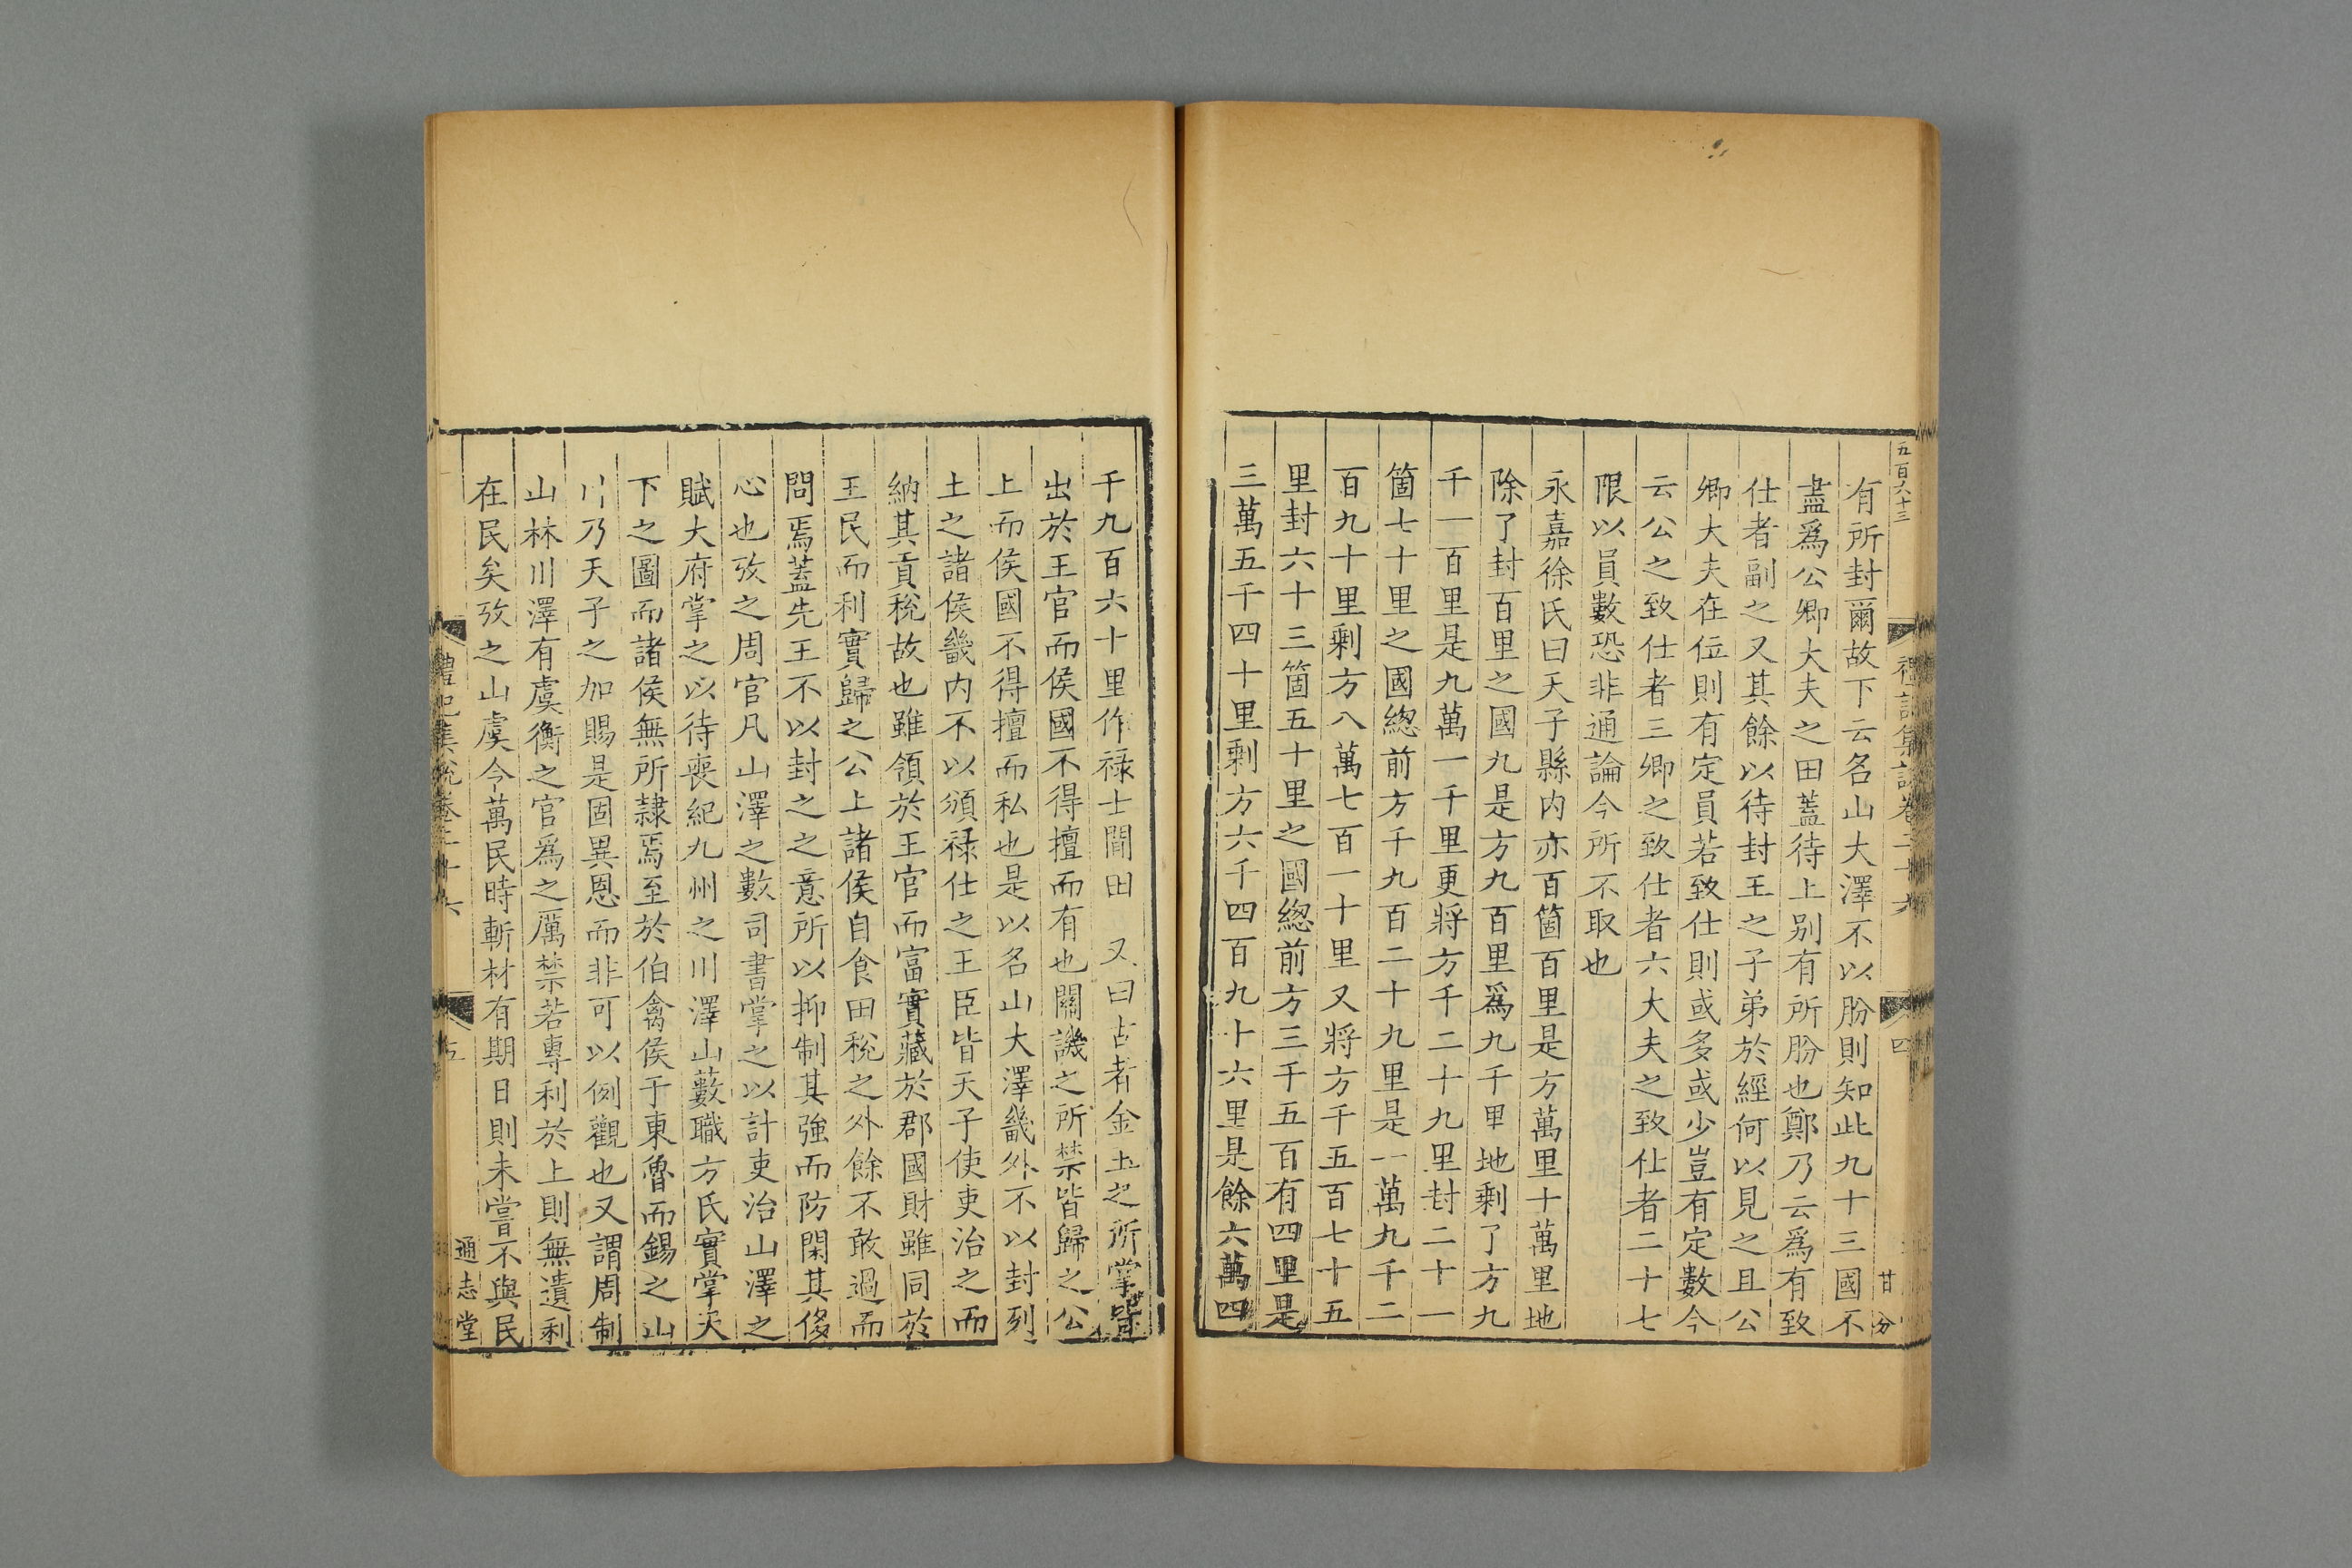 五百六十三
四
甘 分
有所封爾故下云名山大澤不以朌則知此九十三國不
盡爲公卿大夫之田蓋待上别有所朌也鄭乃云爲有致
仕者副之又其餘以待封王之子弟於經何以見之且公
卿大夫在位則有定員若致仕則或多或少豈有定數今
云公之致仕者三卿之致仕者六大夫之致仕者二十七
限以員數恐非通論今所不取也
永嘉徐氏曰天子縣内亦百箇百里是方萬里十萬里地
除了封百里之國九是方九百里爲九千里地剩了方九
千一百里是九萬一千里更將方千二十九里封二十一
箇七十里之國緫前方千九百二十九里是一萬九千二
百九十里剩方八萬七百一十里又將方千五百七十五
里封六十三箇五十里之國緫前方三千五百有四里是
三萬五千四十里剩方六千四百九十六里是餘六萬四
千九百六十里作禄士閒田 又曰古者金玉之所掌皆
出於王官而侯國不得擅而有也關譏之所禁皆歸之公
上而侯國不得擅而私也是以名山大澤畿外不以封列
土之諸侯畿内不以頒禄仕之王臣皆天子使吏治之而
納其貢稅故也雖領於王官而富實藏於郡國財雖同於
王民而利實歸之公上諸侯自食田稅之外餘不敢過而
問焉蓋先王不以封之之意所以抑制其強而防閑其侈
心也攷之周官凡山澤之數司書掌之以計吏治山澤之
賦大府掌之以待喪紀九州之川澤山藪職方氏實掌天
下之圖而諸侯無所隷焉至於伯禽侯于東魯而錫之山
川乃天子之加賜是固異恩而非可以例觀也又謂周制
山林川澤有虞衡之官爲之厲禁若專利於上則無遺利
在民矣攷之山虞令萬民時斬材有期日則未嘗不與民
禮記集說卷二十六
五
通志堂